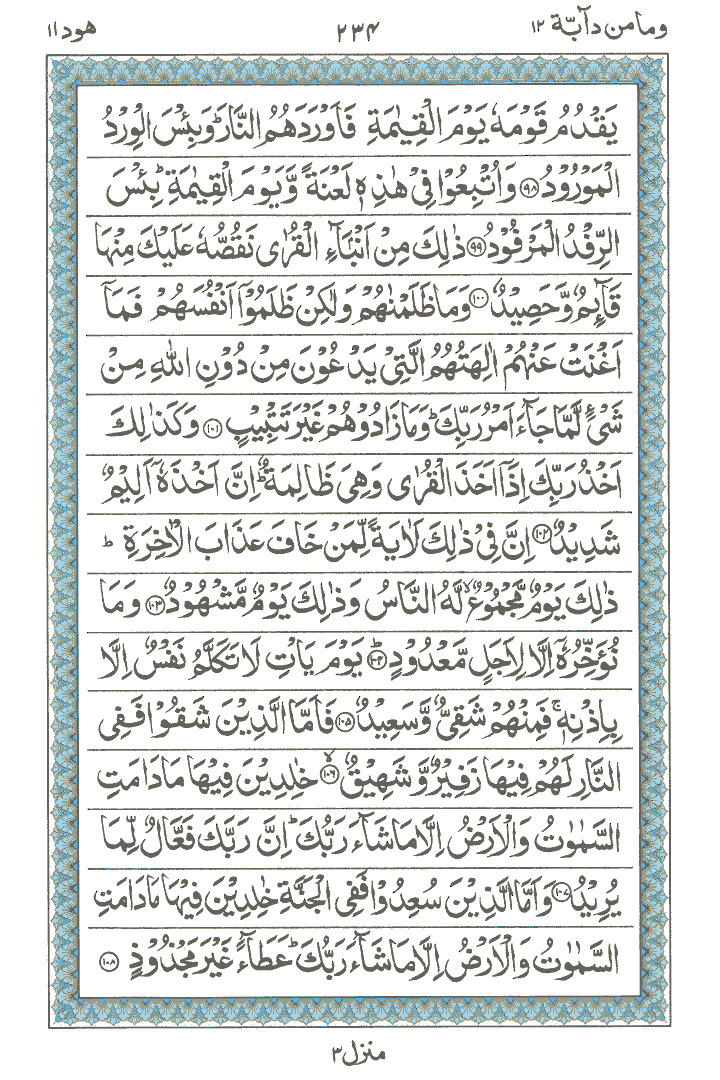 وما من دآبة ١٢
٢٣٤
هود ١١
يَقْدُمُ قَوْمَهٗ يَوْمَ الْقِيٰمَةِ فَاَوْرَدَهُمُ النَّارَ ؕ وَبِئْسَ الْوِرْدُ
الْمَوْرُوْدُ ﴿۹۸﴾ وَاُتْبِعُوْا فِيْ هٰذِهٖ لَعْنَةً وَّيَوْمَ الْقِيٰمَةِ ؕ بِئْسَ
الرِّفْدُ الْمَرْفُوْدُ ﴿۹۹﴾ ذٰلِكَ مِنْ اَنْۢبَآءِ الْقُرٰى نَقُصُّهٗ عَلَيْكَ مِنْهَا
قَآئِمٌ وَّحَصِيْدٌ ﴿۱۰۰﴾ وَمَا ظَلَمْنٰهُمْ وَلٰكِنْ ظَلَمُوْۤا اَنْفُسَهُمْ فَمَاۤ
اَغْنَتْ عَنْهُمْ اٰلِهَتُهُمُ الَّتِيْ يَدْعُوْنَ مِنْ دُوْنِ اللّٰهِ مِنْ
شَيْءٍ لَّمَّا جَآءَ اَمْرُ رَبِّكَ ؕ وَمَا زَادُوْهُمْ غَيْرَ تَتْبِيْبٍ ﴿۱۰۱﴾ وَكَذٰلِكَ
اَخْذُ رَبِّكَ اِذَاۤ اَخَذَ الْقُرٰى وَهِيَ ظَالِمَةٌ ؕ اِنَّ اَخْذَهٗۤ اَلِيْمٌ
شَدِيْدٌ ﴿۱۰۲﴾ اِنَّ فِيْ ذٰلِكَ لَاٰيَةً لِّمَنْ خَافَ عَذَابَ الْاٰخِرَةِ ؕ
ذٰلِكَ يَوْمٌ مَّجْمُوْعٌ ۙ لَّهُ النَّاسُ وَذٰلِكَ يَوْمٌ مَّشْهُوْدٌ ﴿۱۰۳﴾ وَمَا
نُؤَخِّرُهٗۤ اِلَّا لِاَجَلٍ مَّعْدُوْدٍ ؕ ﴿۱۰۴﴾ يَوْمَ يَاْتِ لَا تَكَلَّمُ نَفْسٌ اِلَّا
بِاِذْنِهٖ ۚ فَمِنْهُمْ شَقِيٌّ وَّسَعِيْدٌ ﴿۱۰۵﴾ فَاَمَّا الَّذِيْنَ شَقُوْا فَفِي
النَّارِ لَهُمْ فِيْهَا زَفِيْرٌ وَّشَهِيْقٌ ۙ ﴿۱۰۶﴾ خٰلِدِيْنَ فِيْهَا مَا دَامَتِ
السَّمٰوٰتُ وَالْاَرْضُ اِلَّا مَا شَآءَ رَبُّكَ ؕ اِنَّ رَبَّكَ فَعَّالٌ لِّمَا
يُرِيْدُ ﴿۱۰۷﴾ وَاَمَّا الَّذِيْنَ سُعِدُوْا فَفِي الْجَنَّةِ خٰلِدِيْنَ فِيْهَا مَا دَامَتِ
السَّمٰوٰتُ وَالْاَرْضُ اِلَّا مَا شَآءَ رَبُّكَ ؕ عَطَآءً غَيْرَ مَجْذُوْذٍ ﴿۱۰۸﴾
منزل ٣